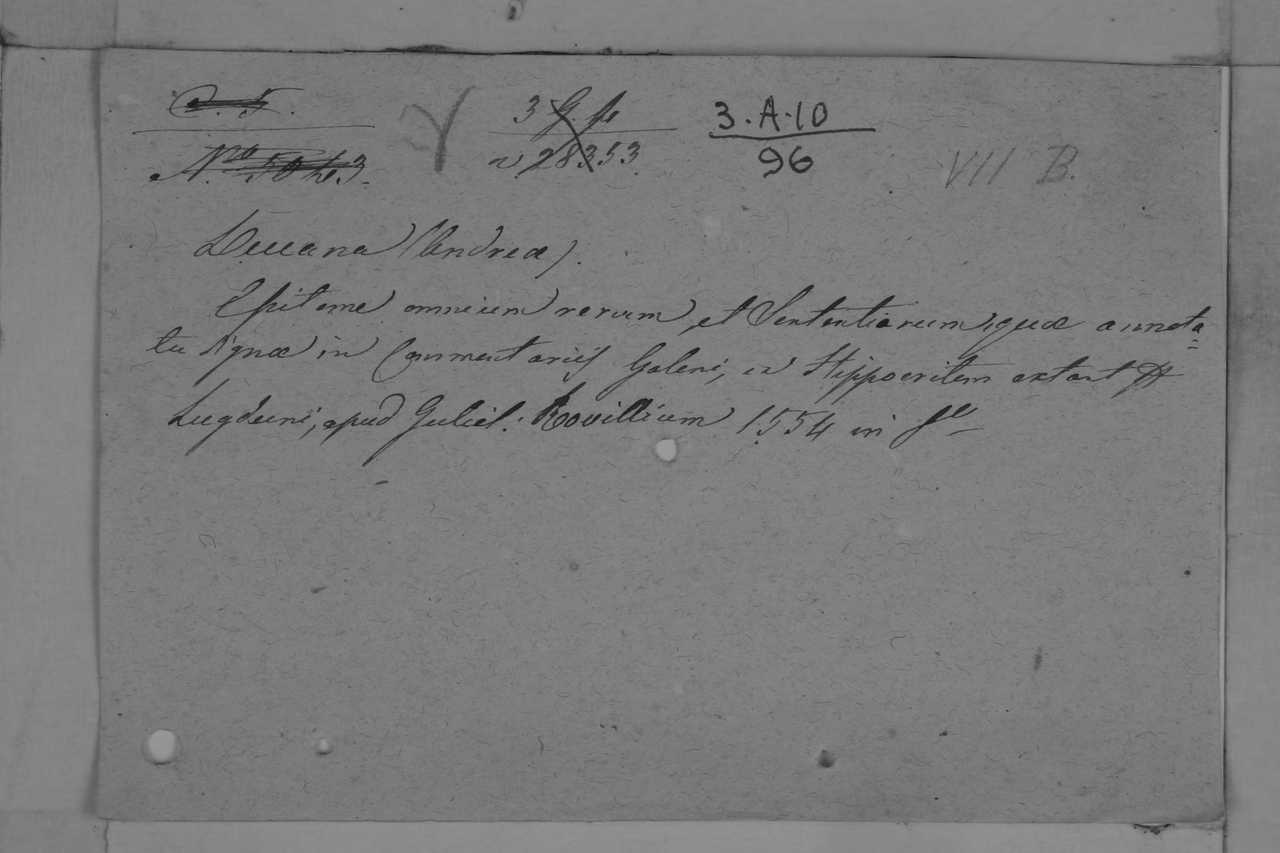 3 G. p 3·A·10
n 28353 96 VII B.
Lucana (Andrea).
Epitome omnium rerum, et Sententiarum, quæ annota=
tu dignæ in Commentariis Galeni, in Hippocritem extant
Lugduni, apud Guliel: Rovillium 1554 in fº